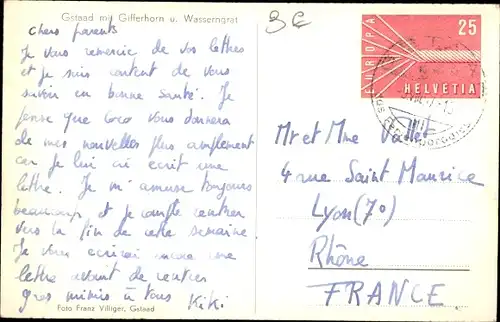 Gstaad mit Gifferhorn u. Wasserngrat
Chers parents
Je vous remercie de vos lettres
et je suis content de vous
savoir en bonne santé. Je
pense que Coco vous donnera
de mes nouvelles plus amplement
car je lui ai écrit une
lettre. Je m'amuse toujours
beaucoup et je compte rentrer
vers la fin de cette semaine
Je vous écrirai encore une
lettre avant de rentrer
gros mimis à tous Kiki
Foto Franz Villiger, Gstaad
EUROPA
25
HELVETIA
Mr et Mme Vallet
4 rue Saint Maurice
Lyon (7°)
Rhône
FRANCE